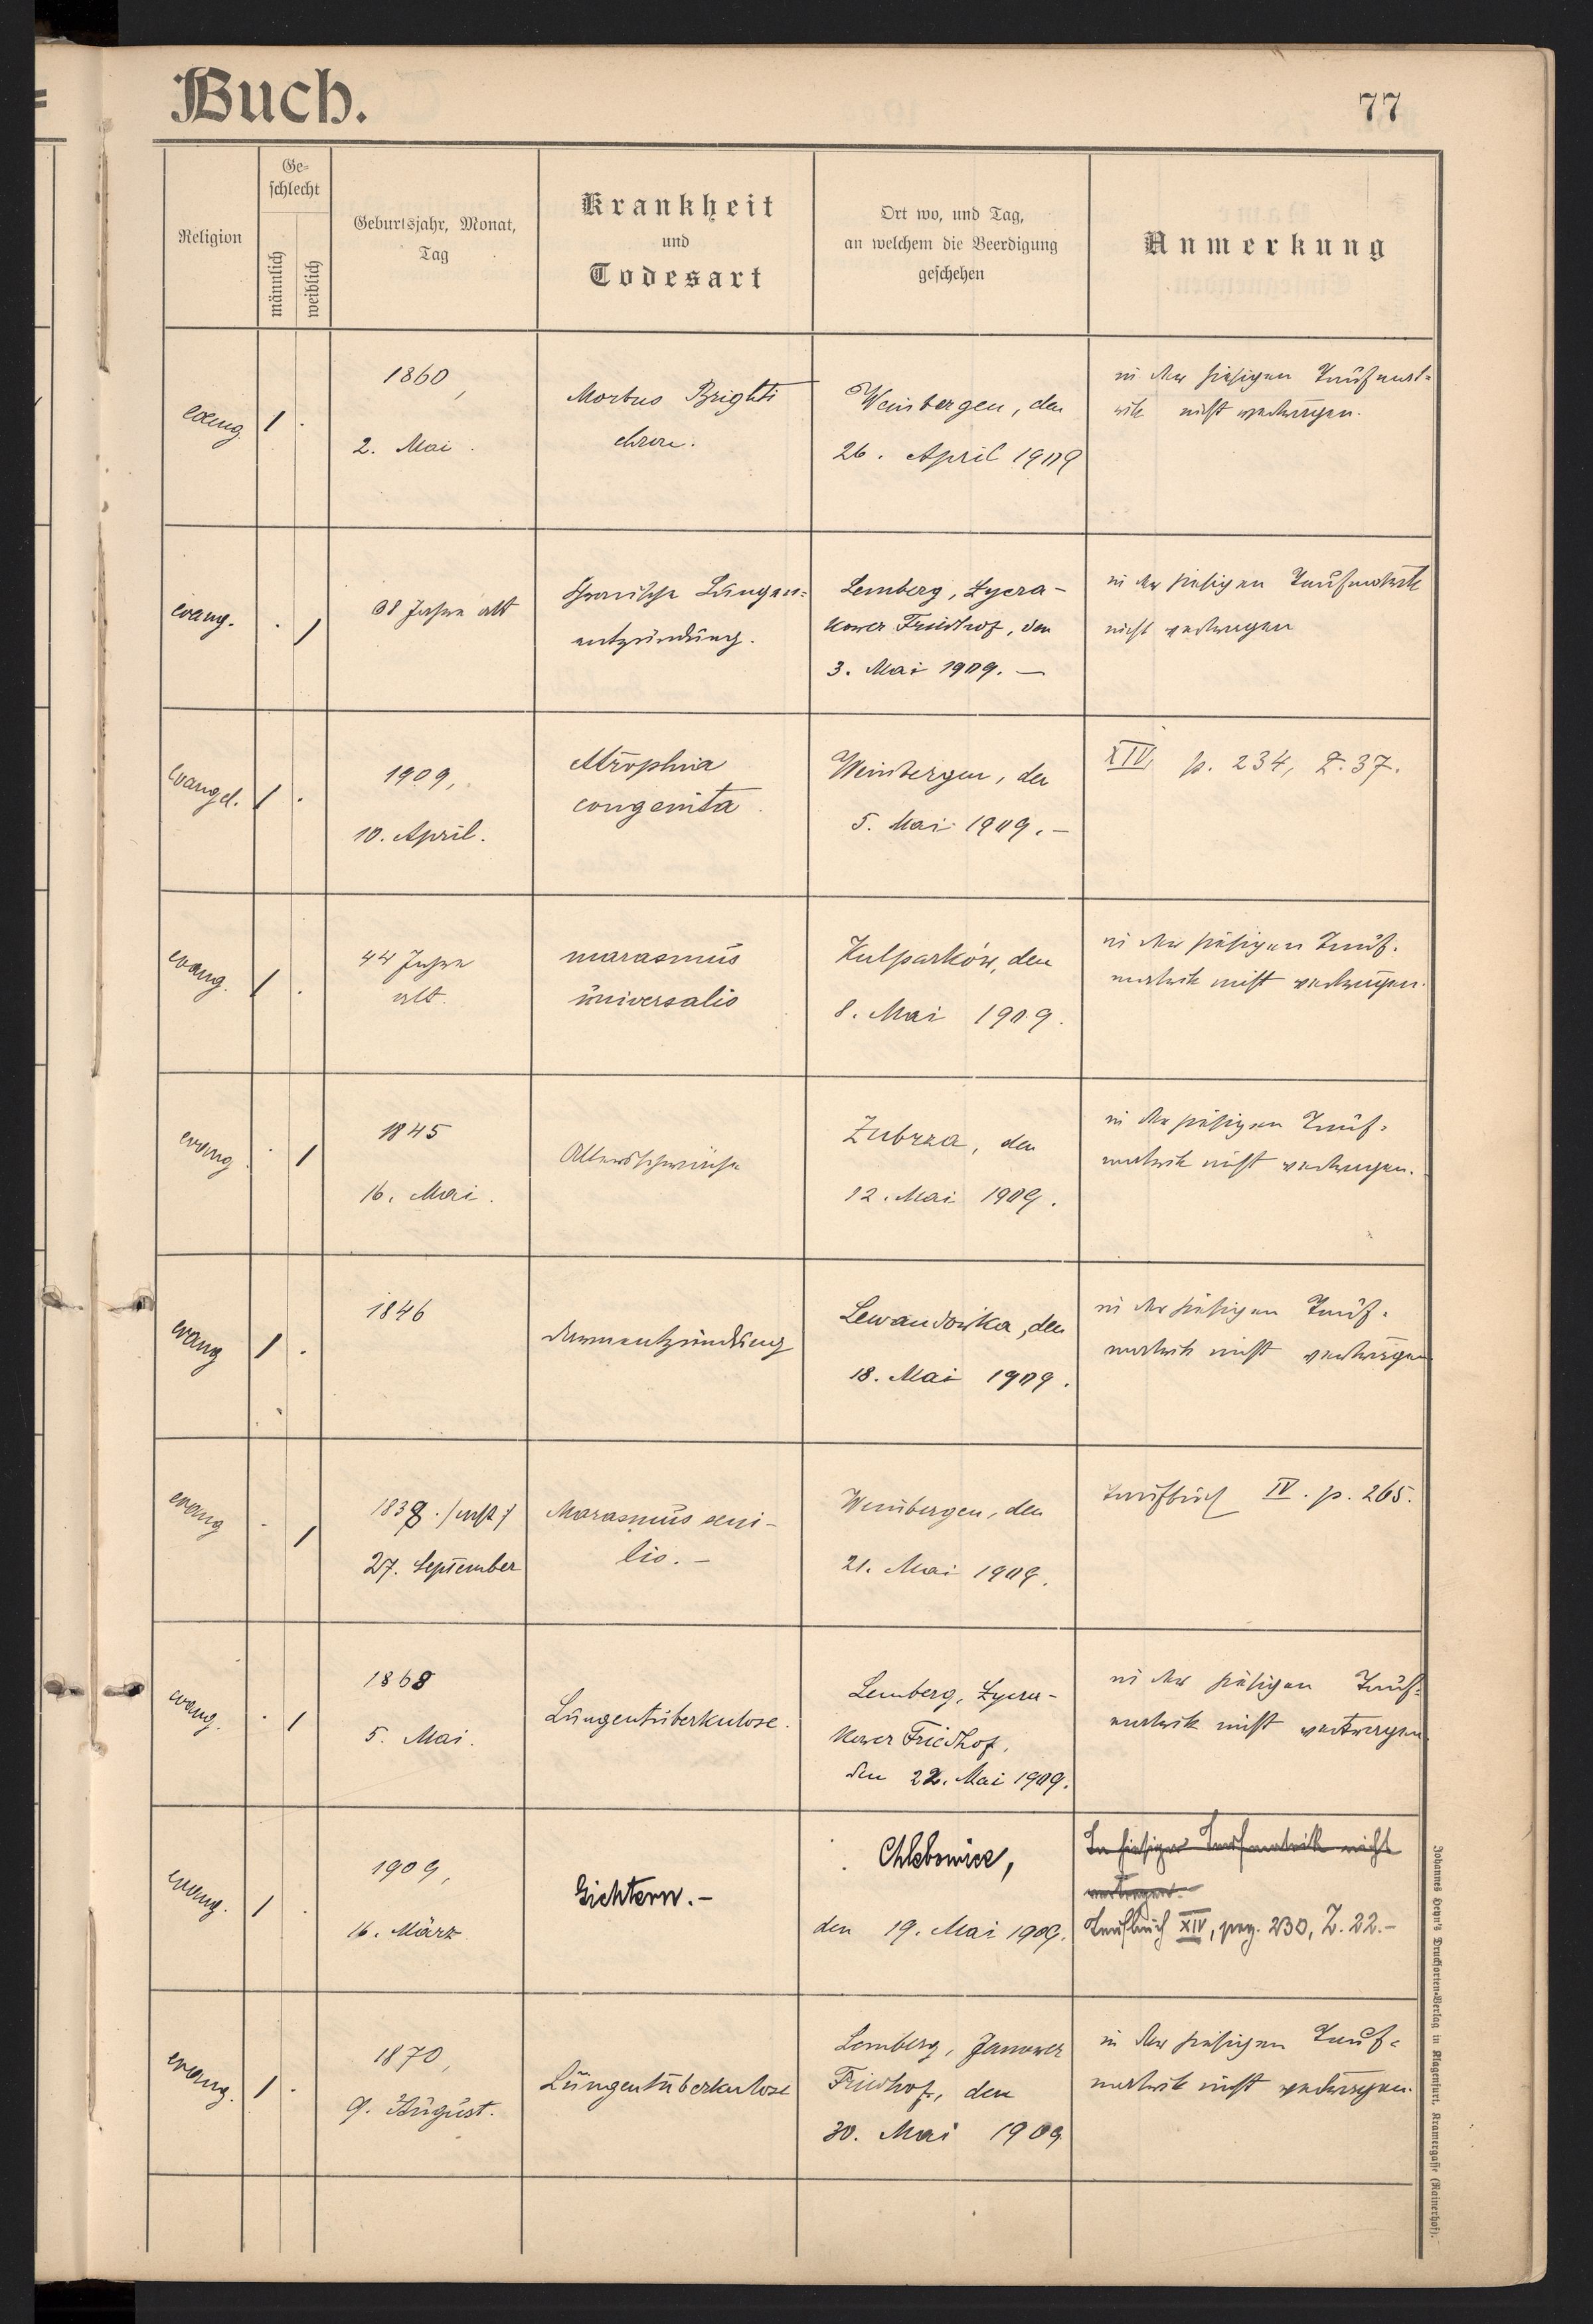 Buch.
77
Religion
Ge-
schlecht
männlich
weiblich
Geburtsjahr, Monat,
Tag
Krankheit
und
Todesart
Ort wo, und Tag,
an welchem die Beerdigung
geschehen
Anmerkung
evang.
1 .
1860,
2. Mai.
Morbus Brighti
chron.
Weinbergen, den
26. April 1909
in der hiesigen Taufmat-
rik nicht eingetragen.
evang.
. 1
38 Jahre alt
Chronische Lungen-
entzündung.
Lemberg, Lycza-
kower Friedhof, den
3. Mai 1909. —
in der hiesigen Taufmatrik
nicht
evangel.
1 .
1909,
10. April.
Atrophia
congenita
Weinbergen, den
5. Mai 1909. —
XIV, p. 234, Z. 37.
evang.
1 .
44 Jahre
alt.
marasmus
universalis
Kulparków, den
8. Mai 1909.
in der hiesigen Tauf-
matrik nicht
evang
. 1
1845
16. Mai.
Altersschwäche
Zubrza, den
12. Mai 1909.
in der hiesigen Tauf-
matrik nicht
evang
1 .
1846
Darmentzündung
Lewandowka, den
18. Mai 1909.
in der hiesigen Tauf-
matrik nicht
evang
. 1
1838.
27. September
Marasmus seni-
lis. —
Weinbergen, den
21. Mai 1909.
Taufbuch IV. p. 265.
evang.
. 1
1868
5. Mai.
Lungentuberkulose.
Lemberg, Lycza-
kower Friedhof,
den 22. Mai 1909.
in der hiesigen Tauf-
matrik nicht
evang.
1 .
1909,
16. März
Gichtern. —
Chlebowice,
den 19. Mai 1909.
In hiesiger Taufmatrik nicht
Taufbuch XIV, pag. 230, Z. 22. —
evang.
1 .
1870,
9. August.
Lungentuberkulose
Lemberg, Janower
Friedhof, den
30. Mai 1909
in der hiesigen Tauf-
matrik nicht
Johannes Heyn's Drucksorten-Verlag in Klagenfurt, Kramergasse (Rainerhof).